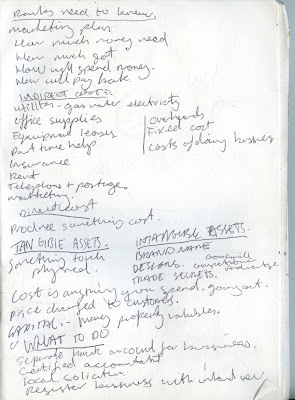 Banks need to know.
marketing plan
How much money need
How much got
How will spend money.
How will pay back.
Indirect costs.
utilities - gas water electricity
office supplies
Equipment leases
Part time help
overheads
Fixed cost
costs of doing business
Insurance
Rent
Telephone + postage
marketing.
Direct cost
Produce something cost.
TANGIBLE ASSETS.
Something touch
physical.
INTANGIBLE ASSETS.
BRAND NAME
DESIGNS.
TRADE SECRETS.
Goodwill
competitive
Cost is anything you spend. going out.
Price charged to customers.
CAPITAL - money property valuables.
WHAT TO DO
Separate bank account for bussiness.
Certified accountant
local solicitor
Register bussiness with inland rev